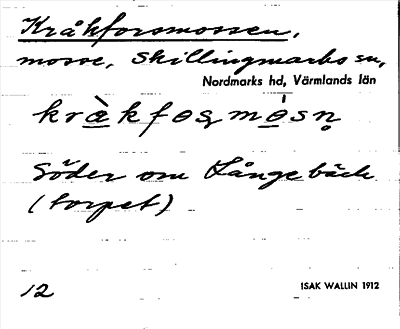 Kråkforsmossen,
mosse, Skillingmarks sn,
Nordmarks hd, Värmlands län
Söder om Långebäck
(torpet)
12
ISAK WALLIN 1912